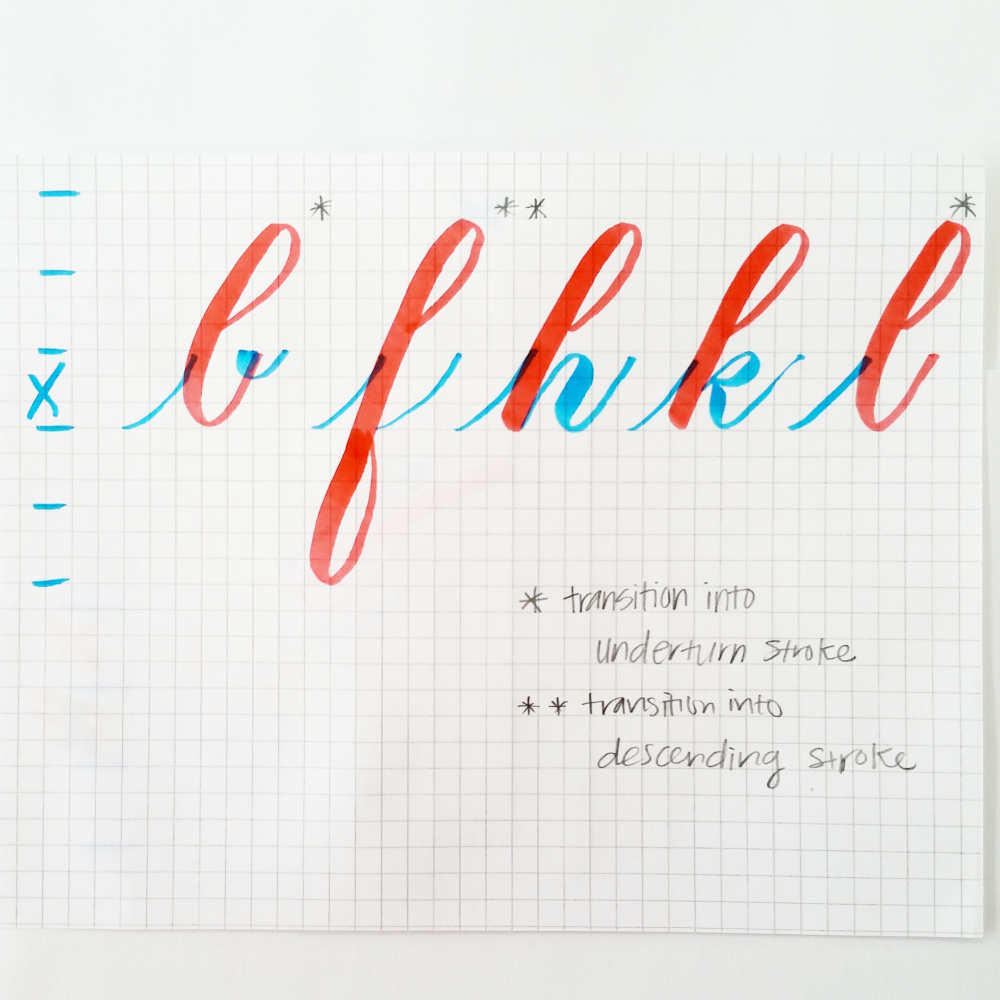 * ** *
b f h k l
X
* transition into
underturn stroke
** transition into
descending stroke